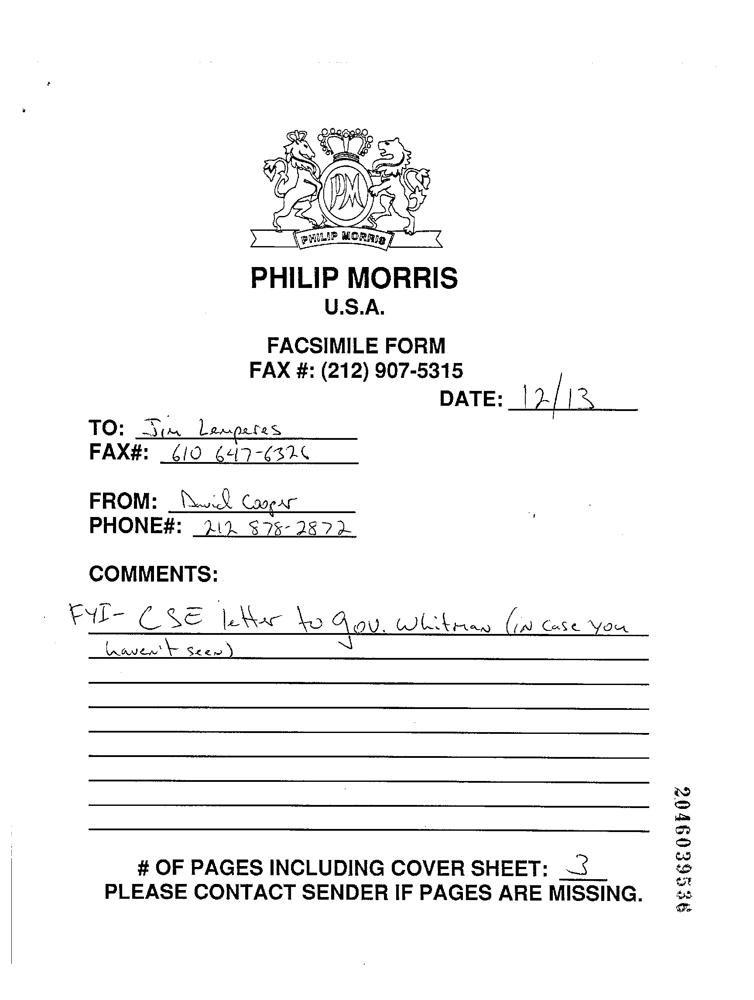 PM
PHILIP MORRIS
PHILIP MORRIS
U.S.A.
FACSIMILE FORM
FAX #: (212) 907-5315
DATE: 12/13
TO: Jim Lemperes
FAX#: 610 647-6326
FROM: David Casper
PHONE#: 212 878-2872
COMMENTS:
FYI- CSE letter to gov. Whitman (in case you
haven't seen)
# OF PAGES INCLUDING COVER SHEET: 3
PLEASE CONTACT SENDER IF PAGES ARE MISSING.
2046039536